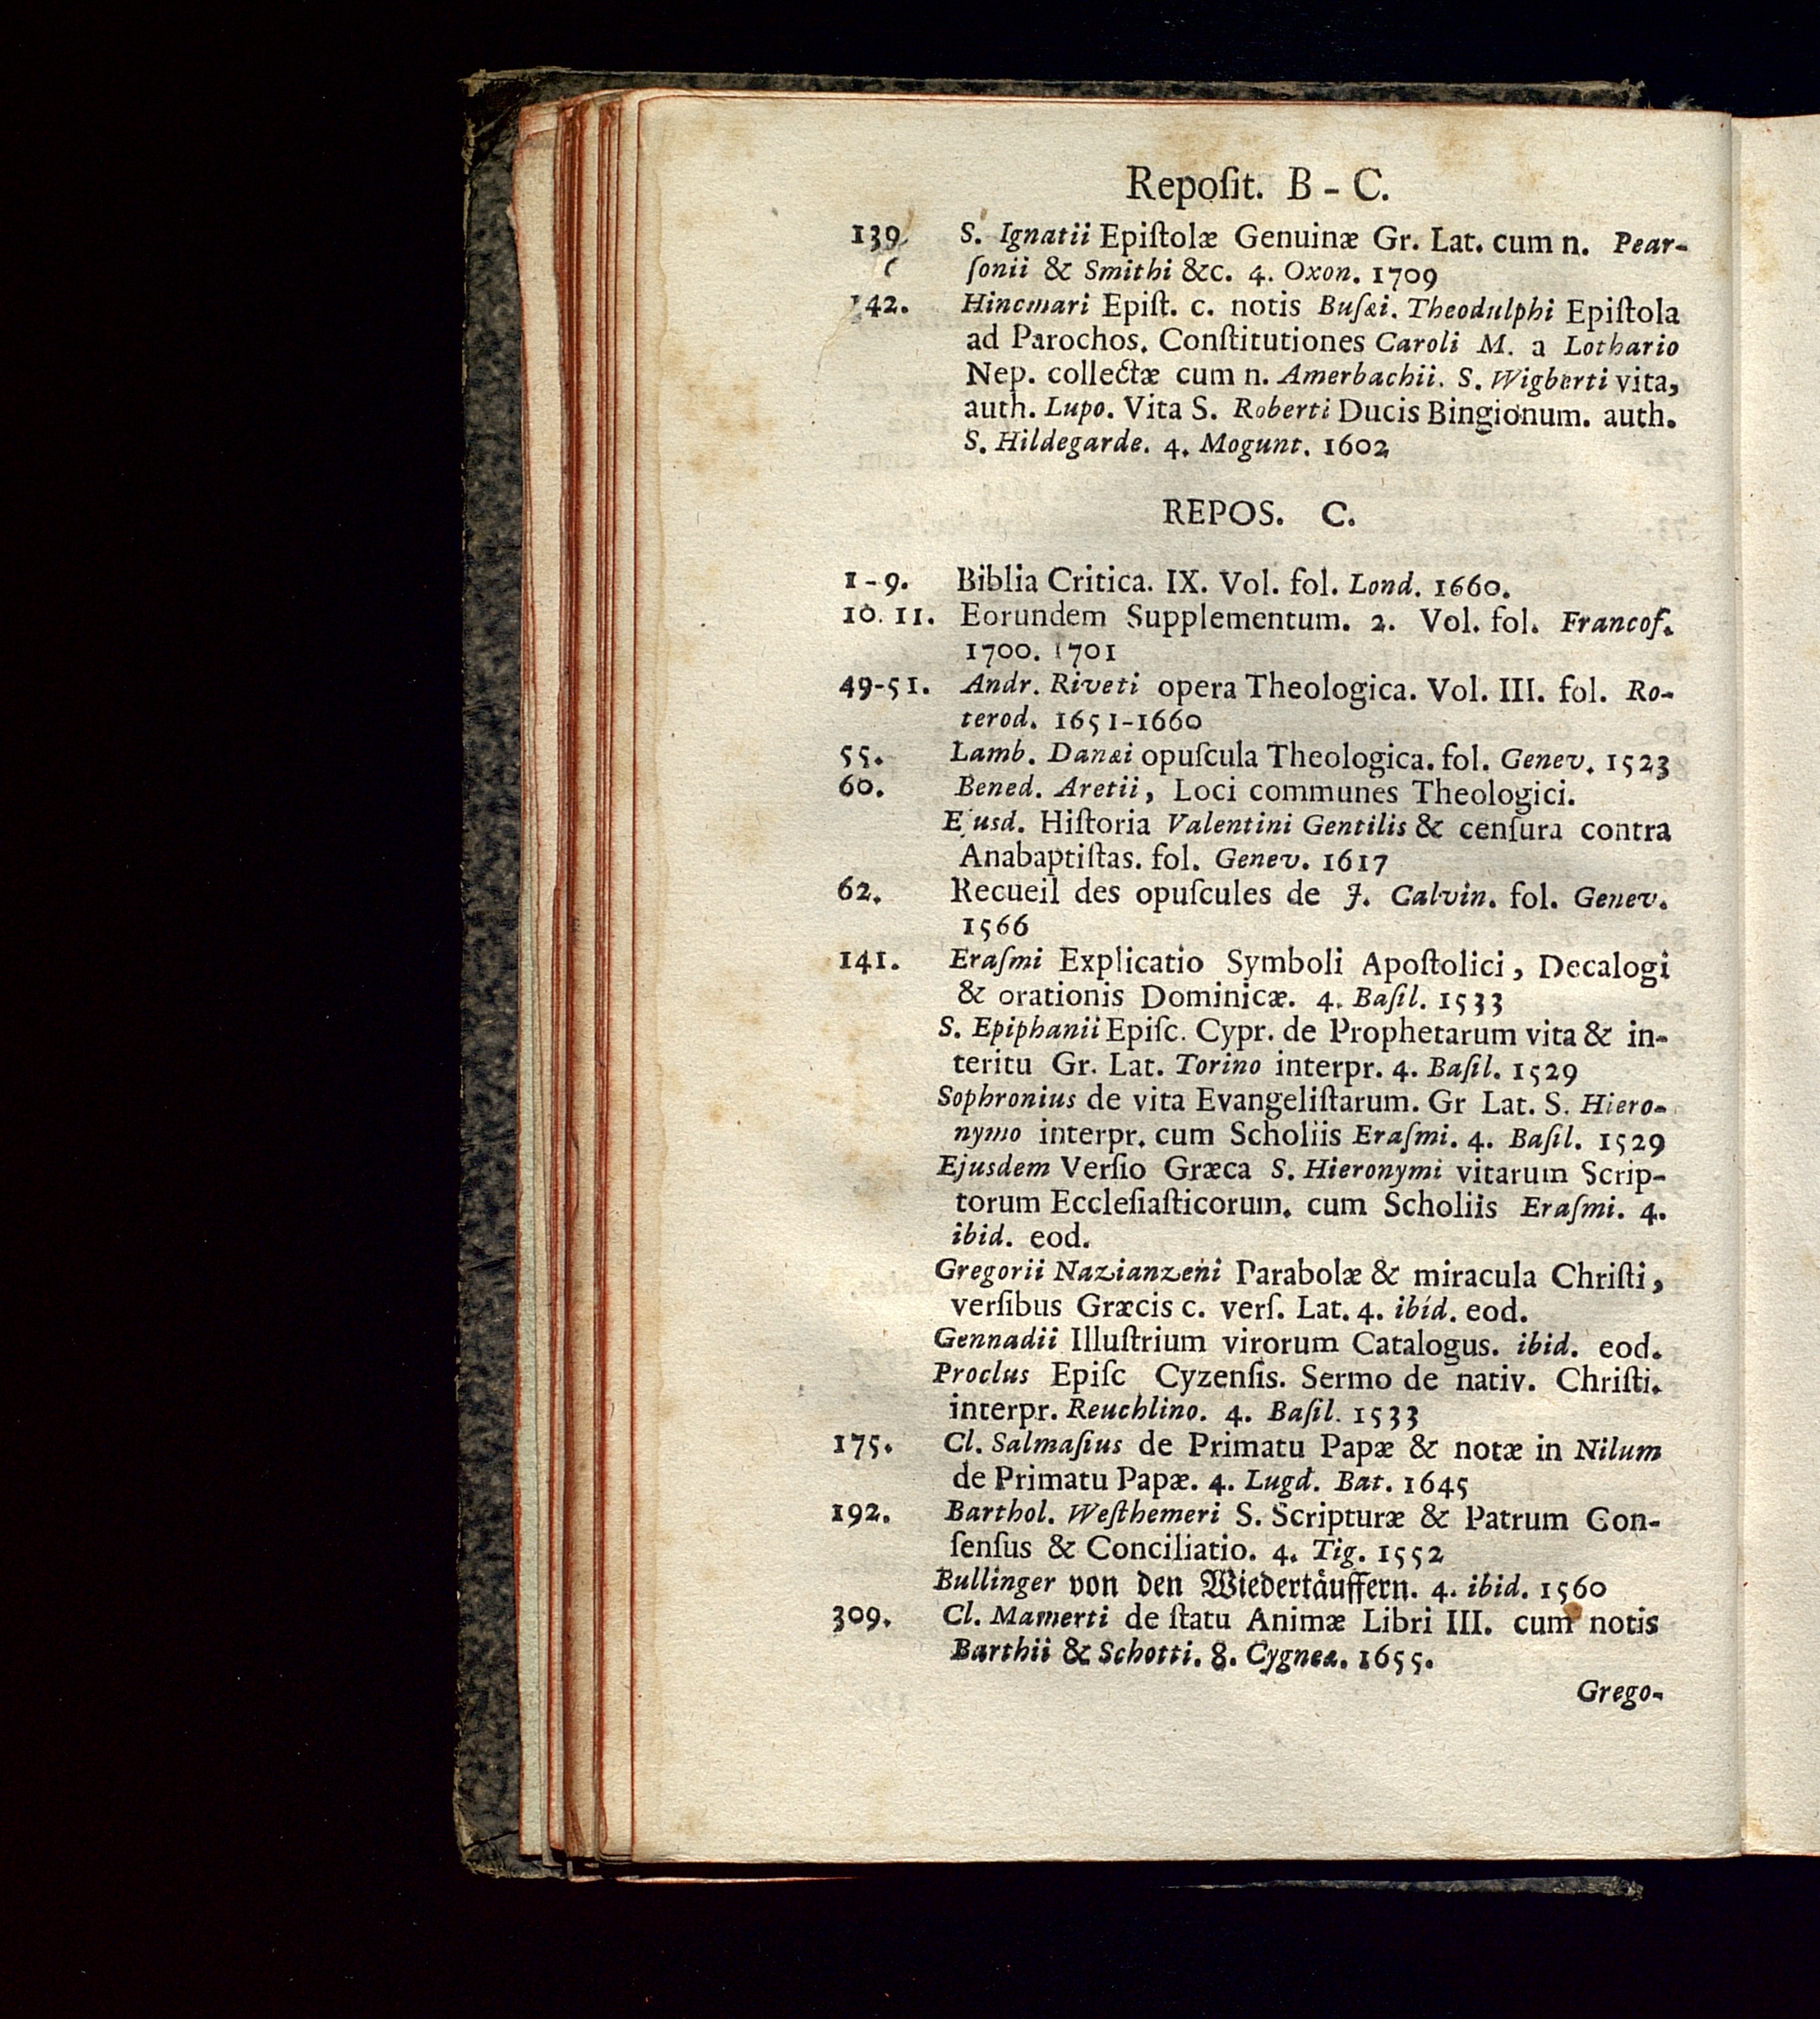 Reposit. B - C.
139. S. Ignatii Epistolæ Genuinæ Gr. Lat. cum n. Pear-
sonii & Smithi &c. 4. Oxon. 1709
142. Hincmari Epist. c. notis Busæi. Theodulphi Epistola
ad Parochos. Constitutiones Caroli M. a Lothario
Nep. collectæ cum n. Amerbachii. S. Wigberti vita,
auth. Lupo. Vita S. Roberti Ducis Bingionum. auth.
S. Hildegarde. 4. Mogunt. 1602
REPOS. C.
1-9. Biblia Critica. IX. Vol. fol. Lond. 1660.
10. 11. Eorundem Supplementum. 2. Vol. fol. Francof.
1700. 1701
49-51. Andr. Riveti opera Theologica. Vol. III. fol. Ro-
terod. 1651-1660
55. Lamb. Danæi opuscula Theologica. fol. Genev. 1523
60. Bened. Aretii, Loci communes Theologici.
Ejusd. Historia Valentini Gentilis & censura contra
Anabaptistas. fol. Genev. 1617
62. Recueil des opuscules de J. Calvin. fol. Genev.
1566
141. Erasmi Explicatio Symboli Apostolici, Decalogi
& orationis Dominicæ. 4. Basil. 1533
S. Epiphanii Episc. Cypr. de Prophetarum vita & in-
teritu Gr. Lat. Torino interpr. 4. Basil. 1529
Sophronius de vita Evangelistarum. Gr Lat. S. Hiero-
nymo interpr. cum Scholiis Erasmi. 4. Basil. 1529
Ejusdem Versio Græca S. Hieronymi vitarum Scrip-
torum Ecclesiasticorum. cum Scholiis Erasmi. 4.
ibid. eod.
Gregorii Nazianzeni Parabolæ & miracula Christi,
versibus Græcis c. vers. Lat. 4. ibid. eod.
Gennadii Illustrium virorum Catalogus. ibid. eod.
Proclus Episc Cyzensis. Sermo de nativ. Christi.
interpr. Reuchlino. 4. Basil. 1533
175. Cl. Salmasius de Primatu Papæ & notæ in Nilum
de Primatu Papæ. 4. Lugd. Bat. 1645
192. Barthol. Westhemeri S. Scripturæ & Patrum Con-
sensus & Conciliatio. 4. Tig. 1552
Bullinger von den Wiedertåuffern. 4. ibid. 1560
309. Cl. Mamerti de statu Animæ Libri III. cum notis
Barthii & Schotti. 8. Cygneæ. 1655.
Grego-